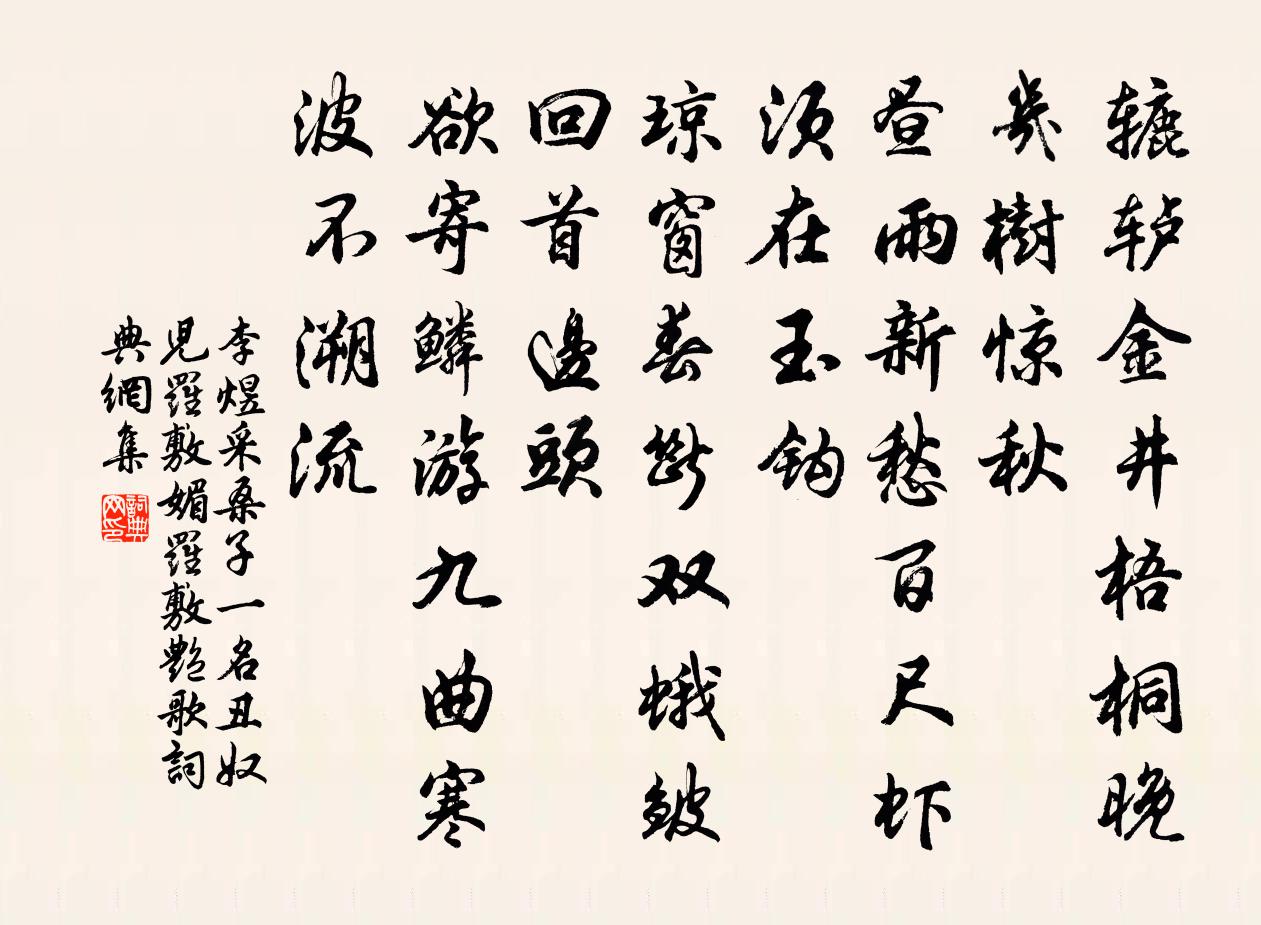 辘轳金井梧桐晚
幾樹惊秋
昼雨新愁百尺虾
须在玉钩
琼窗春断双蛾皱
回首邊頭
欲寄鳞游九曲寒
波不溯流
李煜采桑子一名丑奴
児羅敷媚羅敷艷歌詞
典網集
詞典
网印